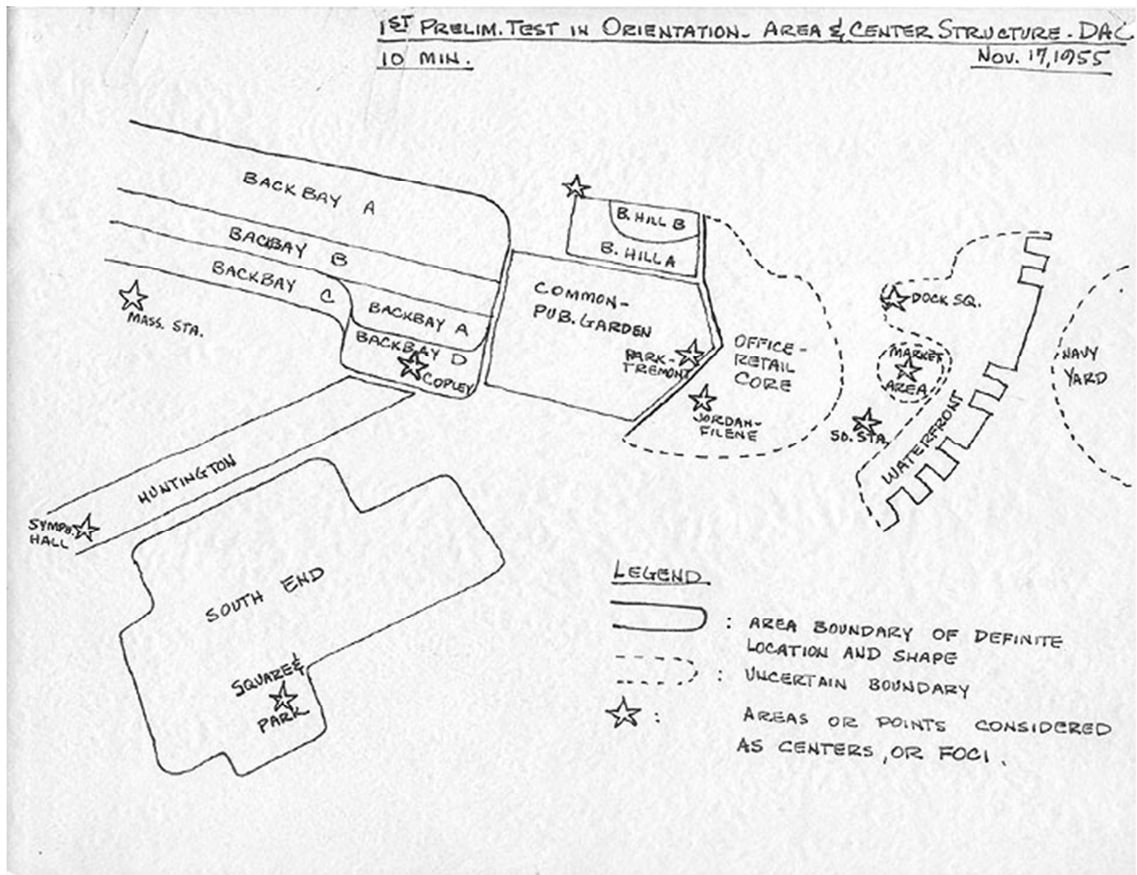 1ST PRELIM. TEST IN ORIENTATION - AREA & CENTER STRUCTURE - DAC
10 MIN.
NOV. 17, 1955
BACKBAY A
BACKBAY B
BACKBAY C
BACKBAY A
BACKBAY D
COPLEY
MASS. STA.
B. HILL B
B. HILL A
COMMON-
PUB. GARDEN
PARK-
TREMONT
OFFICE-
RETAIL
CORE
JORDAN-
FILENE
DOCK SQ.
MARKET
AREA
SO. STA.
WATERFRONT
NAVY
YARD
HUNTINGTON
SYMPH.
HALL
SOUTH END
SQUARE &
PARK
LEGEND
: AREA BOUNDARY OF DEFINITE
LOCATION AND SHAPE
: UNCERTAIN BOUNDARY
: AREAS OR POINTS CONSIDERED
AS CENTERS, OR FOCI.